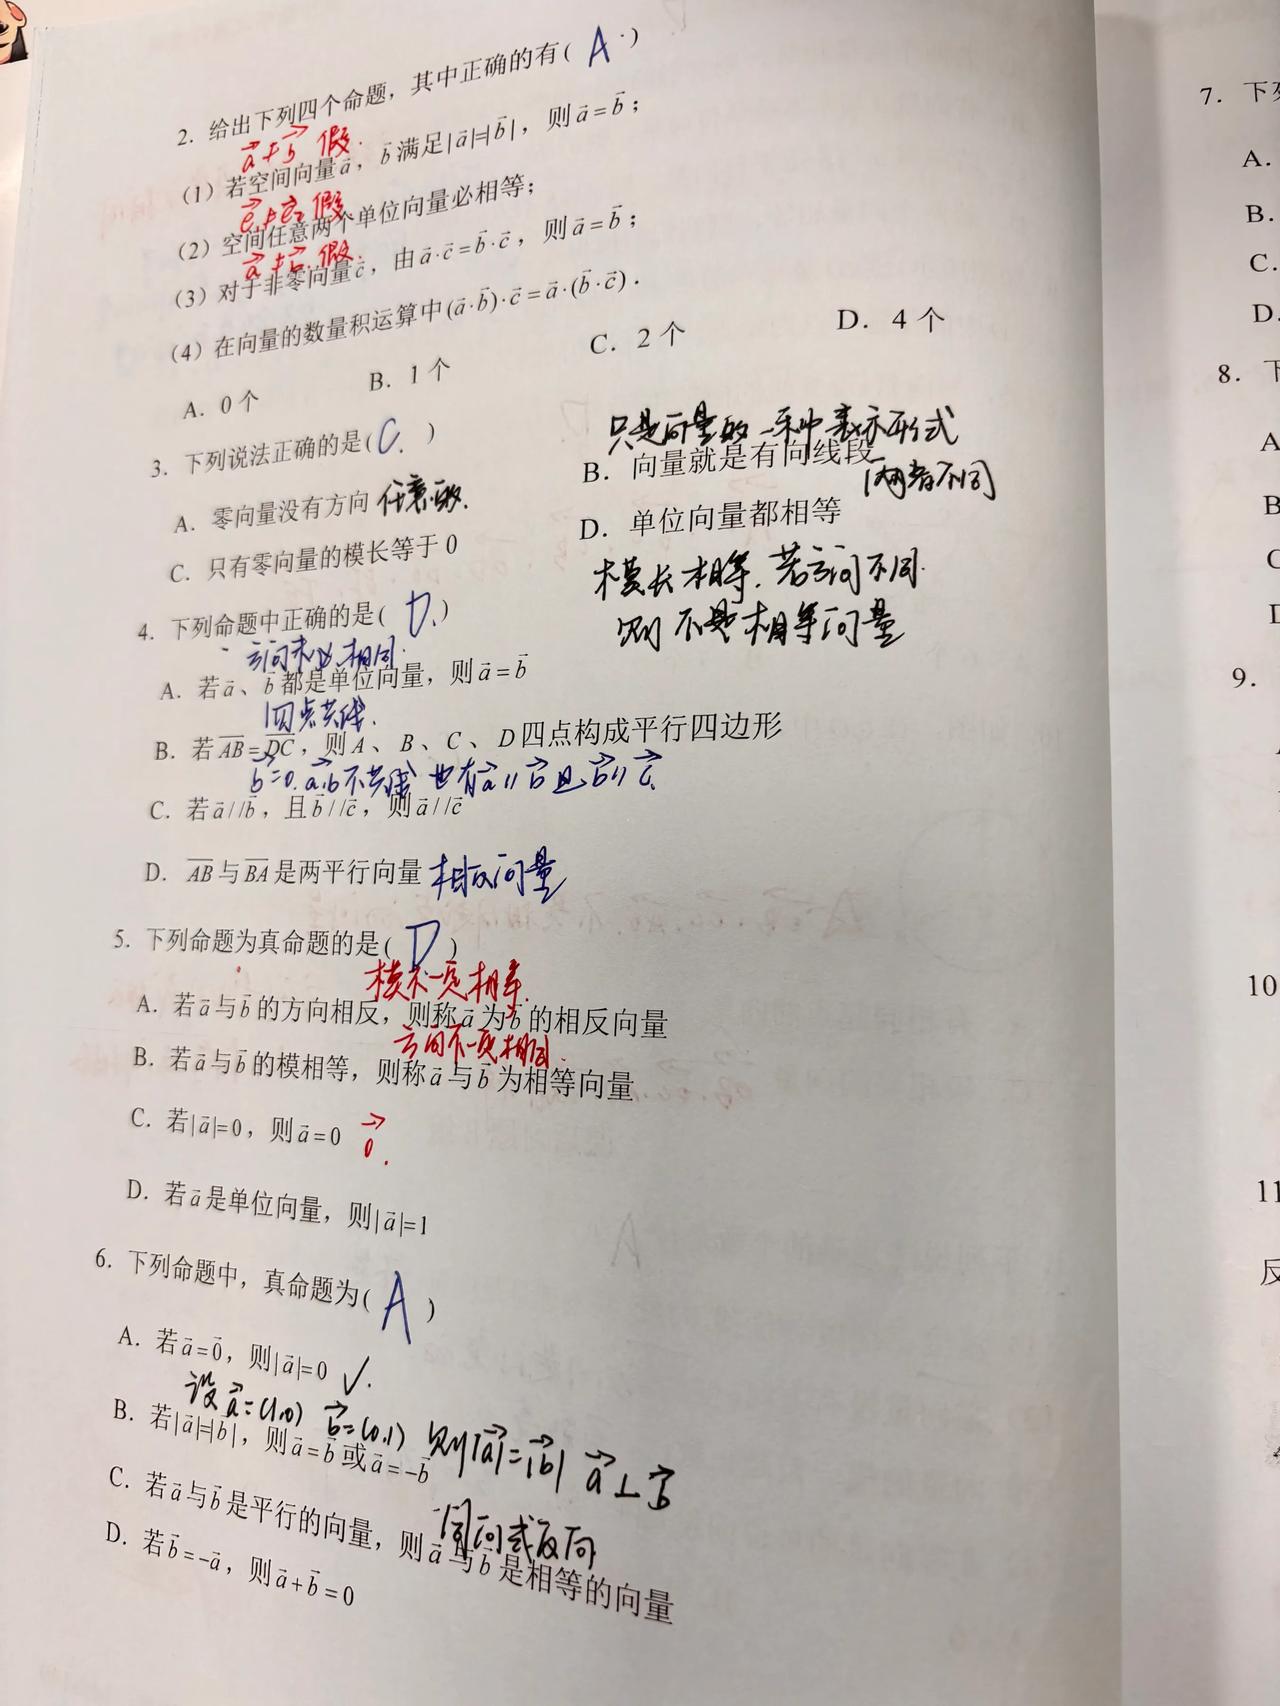 2. 给出下列四个命题，其中正确的有( A )
a≠b 假.
(1) 若空间向量a，b满足|a|=|b|，则a=b；
e₁≠e₂ 假
(2) 空间任意两个单位向量必相等；
a≠b. 假.
(3) 对于非零向量c，由a·c=b·c，则a=b；
(4) 在向量的数量积运算中(a·b)·c=a·(b·c).
A. 0个 B. 1个 C. 2个 D. 4个
3. 下列说法正确的是( C. )
只是向量的一种表示形式
A. 零向量没有方向 任意 B. 向量就是有向线段
两者不同
C. 只有零向量的模长等于0 D. 单位向量都相等
模长相等.若方向不同.
则不是相等向量
4. 下列命题中正确的是( D. )
方向未必相同.
A. 若a、b都是单位向量，则a=b
四点共线.
B. 若AB=DC，则A、B、C、D四点构成平行四边形
b=0. a.b不共线 也有a//b且b//c.
C. 若a//b，且b//c，则a//c
D. AB与BA是两平行向量 相反向量
5. 下列命题为真命题的是( D )
模不一定相等.
A. 若a与b的方向相反，则称a为b的相反向量
方向不一定相同.
B. 若a与b的模相等，则称a与b为相等向量
C. 若|a|=0，则a=0 0.
D. 若a是单位向量，则|a|=1
6. 下列命题中，真命题为( A )
A. 若a=0，则|a|=0 ✓.
设a=(1,0) b=(0,1) 则|a|=|b| a⊥b
B. 若|a|=|b|，则a=b或a=-b
同向或反向
C. 若a与b是平行的向量，则a与b是相等的向量
D. 若b=-a，则a+b=0
7. 下列
A.
B.
C.
D.
8. 下
A
B
C
9.
10
11
反